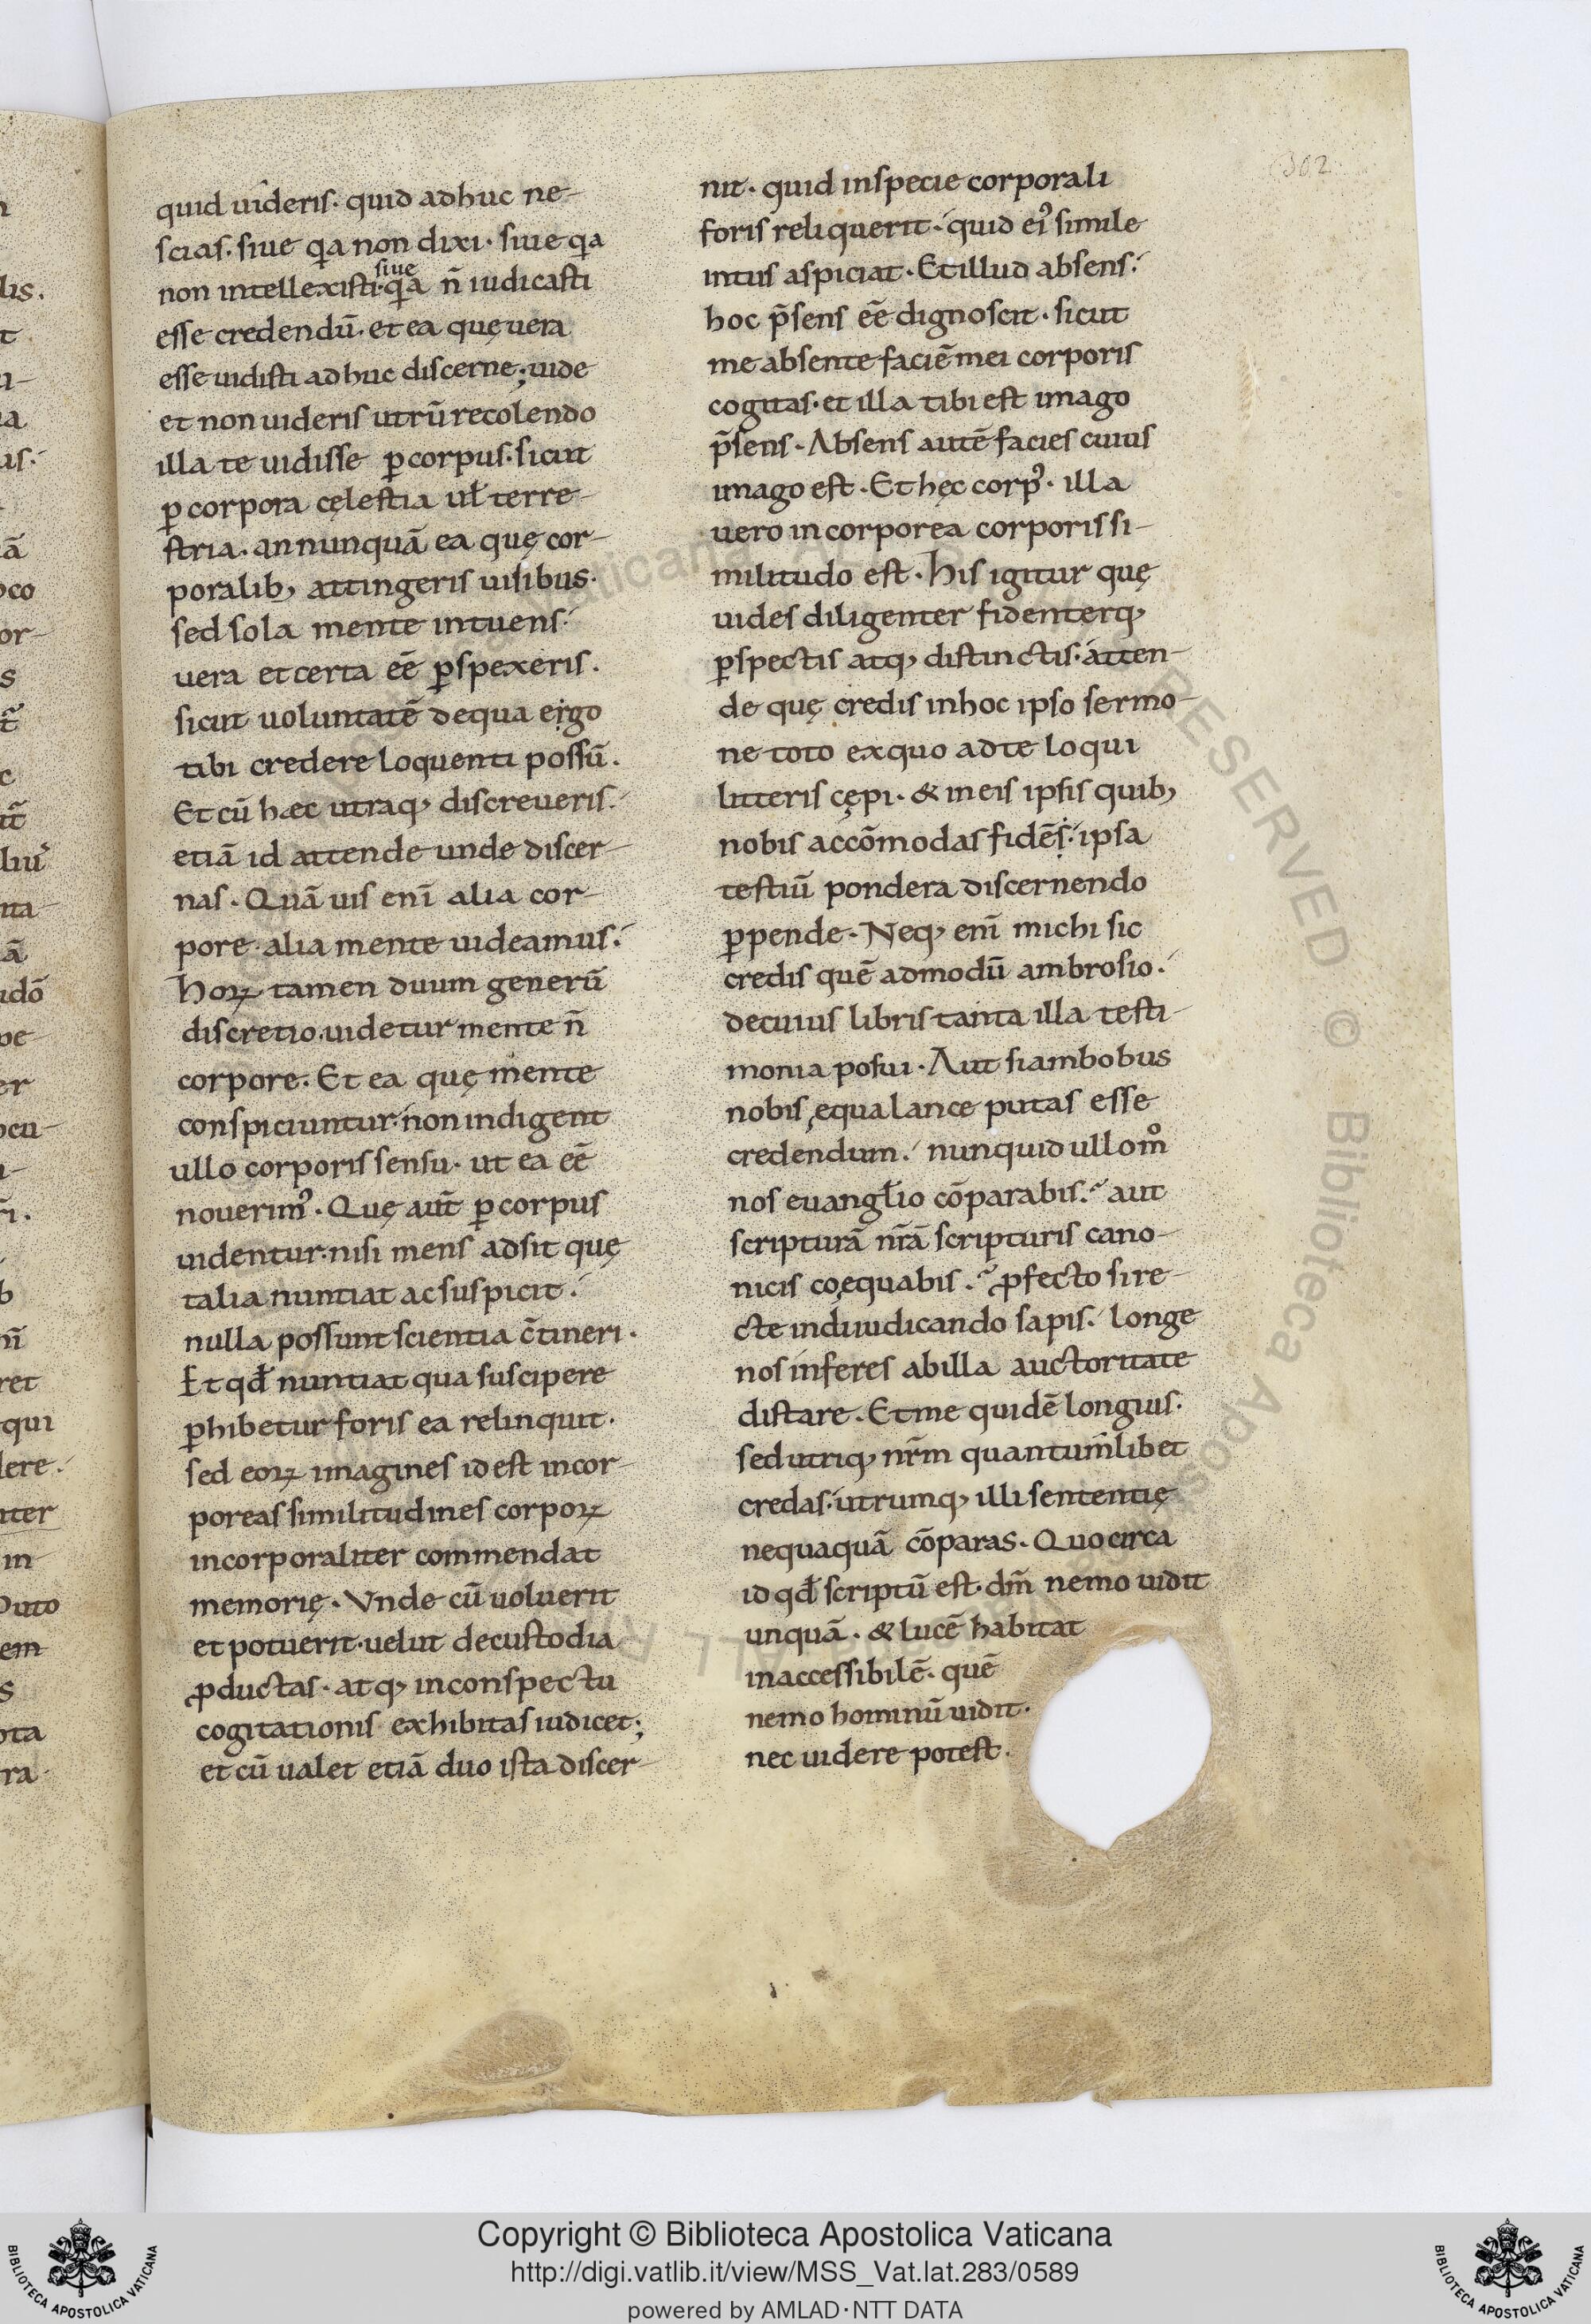 302
quid uideris. quid adhuc ne-
scias. siue qͥa non dixi. siue qͥa
non intellexisti. siue qͥa n̄ iudicasti
esse credendū. et ea quę uera
esse uidisti adhuc discerne; uide
et non uideris utrū recolendo
illa te uidisse ꝑ corpus. sicut
ꝑ corpora cęlestia ul̄ terre-
stria. an nunquā ea quę cor-
poralib; attingeris uisibus.
sed sola mente intuens.
uera et certa eē ꝑspexeris.
sicut uoluntatē de qua ergo
tibi credere loquenti possū.
Et cū hæc utraq; discreueris.
etiā id attende unde discer-
nas. Quā uis enī alia cor-
pore. alia mente uideamus.
Hoꝝ tamen duum generū
discretio. uidetur mente n̄
corpore. Et ea quę mente
conspiciuntur. non indigent
ullo corporis sensu. ut ea eē
nouerimꝰ. Quę aut̄ ꝑ corpus
uidentur. nisi mens adsit quę
talia nuntiat ac suspicit.
nulla possunt scientia c̄tineri.
Et qd̄ nuntiat qua suscipere
ꝑhibetur foris ea relinquit.
sed eoꝝ imagines id est incor-
poreas similitudines corpoꝝ
incorporaliter commendat
memorię. Vnde cū uoluerit
et potuerit. uelut de custodia
ꝓductas. atq; in conspectu
cogitationis exhibitas iudicet;
et cū ualet etiā duo ista discer-
nit. quid in specie corporali
foris reliquerit. quid eiꝰ simile
intus aspiciat. Et illud absens.
hoc p̄sens eē dignoscit. sicut
me absente faciē mei corporis
cogitas. et illa tibi est imago
p̄sens. Absens autē facies cuius
imago est. Et hęc corpꝰ. illa
uero incorporea corporis si-
militudo est. His igitur quę
uides diligenter fidenterq;
ꝑspectis atq; distinctis. atten-
de quę credis in hoc ipso sermo-
ne toto ex quo ad te loqui
litteris cępi. & in eis ipsis quib;
nobis accōmodas fidēs. ipsa
testiū pondera discernendo
ꝑpende. Neq; enī michi sic
credis quē admodū ambrosio.
de cuius libris tanta illa testi-
monia posui. Aut si ambobus
nobis ęqua lance putas esse
credendum. nunquid ullo mͦ
nos euangl̄io cōparabis. aut
scripturā nr̄ā scripturis cano-
nicis coęquabis. ꝓfecto si re-
cte in diiudicando sapis. longe
nos inferes ab illa auctoritate
distare. Et me quidē longius.
sed utriq; nr̄m quantumlibet
credas. utrumq; illi sententię
nequaquā cōparas. Quocirca
id qd̄ scriptū est. dm̄ nemo uidit
unquā. & lucē habitat
inaccessibilē. quē
nemo hominū uidit.
nec uidere potest.
Copyright © Biblioteca Apostolica Vaticana
http://digi.vatlib.it/view/MSS_Vat.lat.283/0589
powered by AMLAD·NTT DATA